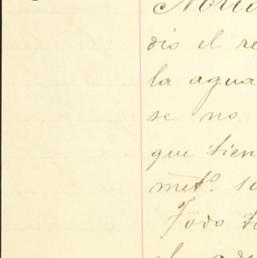 dio el re
la agua
se no
que tien
met°. 10
Todo
el